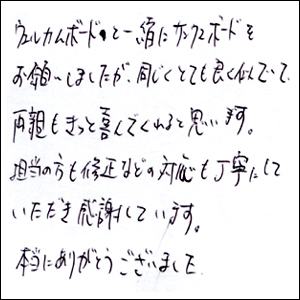 ウェルカムボードと一緒にサンクスボードを
お願いしましたが、同じくとても良く似ていて、
両親もきっと喜んでくれると思います。
担当の方も修正などの対応も丁寧にして
いただき感謝しています。
本当にありがとうございました。